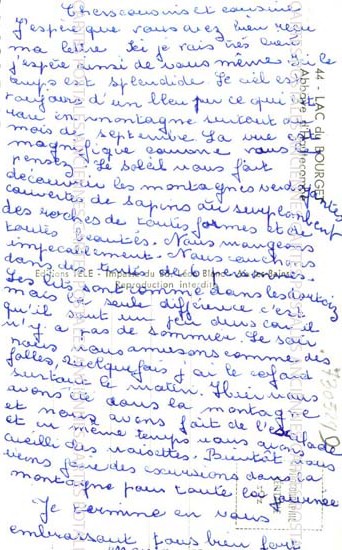 Chers cousins et cousines
J'espère que vous avez bien reçu
ma lettre. Ici je vais très bien
j'espère ainsi de vous même. Ici le
temps est splendide. Le ciel est
toujours d'un bleu pur ce qui est
rare en montagne surtout au
mois de septembre. La vue est
magnifique comme vous
pensez. Le soleil vous fait
découvrir les montagnes verdoyantes
couvertes de sapins qui surplombent
des roches de toutes formes et de
toutes beautés. Nous mangeons
impecablement. Nous couchons
dans des
Les lits sont comme dans les dortoirs
mais la seule différence c'est
qu'il sont un peu durs car il
n'y a pas de sommier. Le soir
nous nous amusons comme des
folles, quelquefois j'ai le cafard
surtout le matin. Hier nous
avons été dans la montagne
et nous avons fait de l'escalade
et en même temps nous avons
cueilli des noisettes. Bientôt nous
irons faire des excursions dans la
montagne pour toute la journée
Je termine en vous
embrassant tous bien fort
44 - LAC du BOURGET
Abbaye d'Hautecombe
Editions TELE -
Reproduction interdite